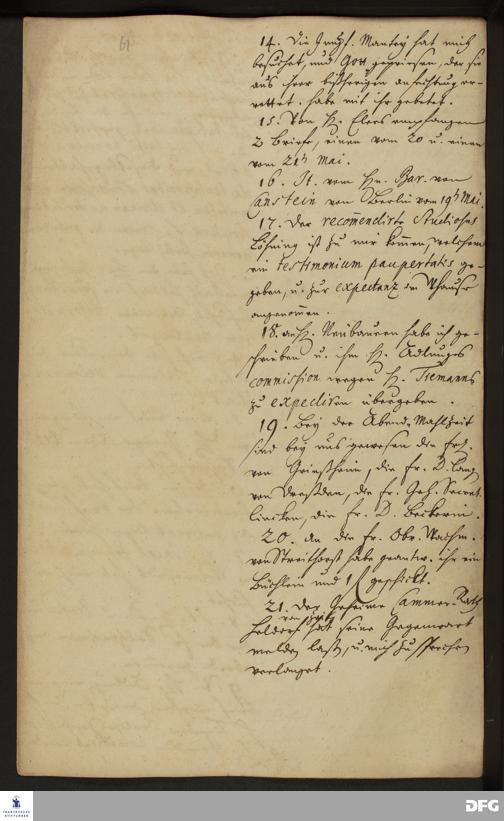 61
14. Die Jungf. Mantey hat mich
besuchet, und Gott gepriesen, der sie
aus ihrer bißherigen anfechtung er-
rettet. habe mit ihr gebetet.
15. Von H. Elers empfangen
2 Briefe, einen vom 20 u. einen
vom 21t Mai.
16. It. vom Hn. Bar. von
Canstein von Berlin vom 19t Mai.
17. Der recom̄endirte Studiosus
Löhning ist zu mir kom̄en, welchem
ein testimonium paupertatis ge-
geben, u. zur expectanz im
angenom̄en.
18. an H. Neubauern habe ich ge-
schrieben u. ihm H. Adlungs
commission wegen H. Tiemanns
zu expediren übergeben.
19. Bey der Abend-Mahlzeit
sind bey uns gewesen die Fr.
von Grießheim, die Fr. D. Lang
von Dreßden, die Fr. Geh. Secret.
Lincken, die Fr. D. Beckerin.
20. An die Fr. Obr. Wachm.
von Streithorst habe geantw. ihr ein
Büchlein und 1 geschickt.
21. Der Geheime Cammer-Rath
von Zeitz
Heldorf hat seine Gegenwart
melden laßen, u. mich zu sprechen
verlanget.
FRANCKESCHE
STIFTUNGEN
DFG